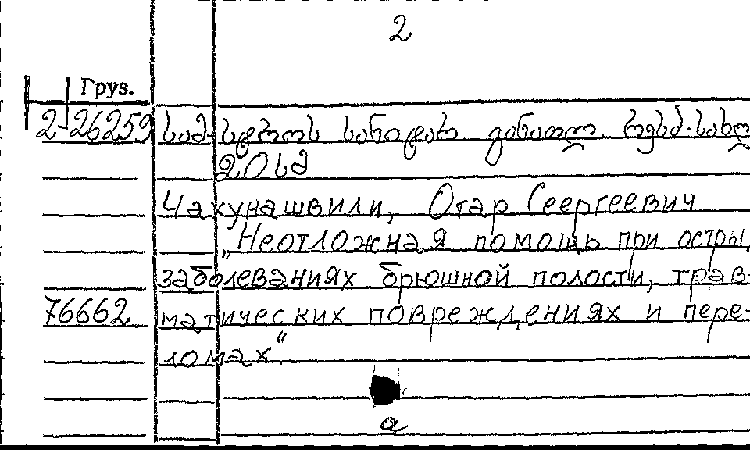 2
Груз.
2-26259
Чахунашвили, Отар Сеергеевич
„Неотложная помощь при остры
заболеваниях брюшной полости, трав-
76662 матических повреждениях и пере-
ломах“
а